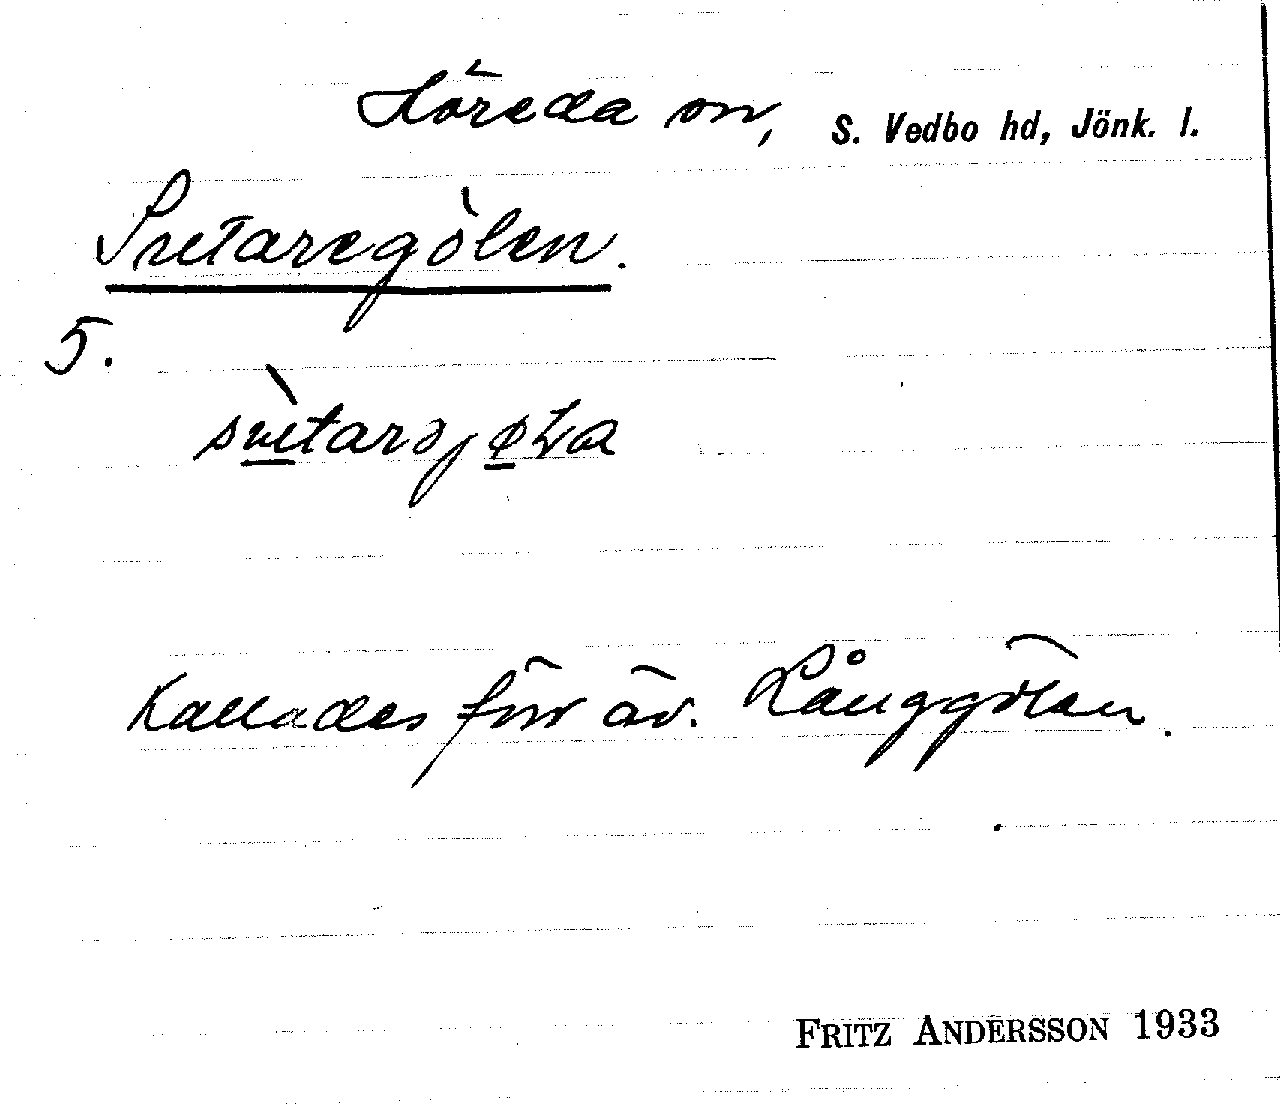 Höreda sn, S. Vedbo hd, Jönk. l.
Svetaregölen.
5.
Kallades förr äv. Långgölen.
FRITZ ANDERSSON 1933